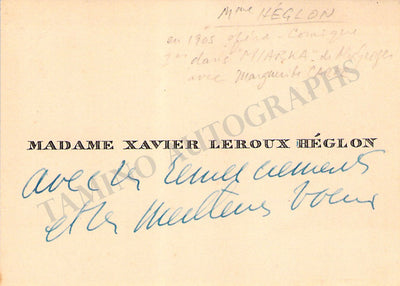 Mme HÉGLON
en 1905 opéra-Comique
dans "MIARKA" de
avec Marguerite CARRÉ
MADAME XAVIER LEROUX HÉGLON
avec les Remerciements
et les meilleurs voeux
TAMINO AUTOGRAPHS